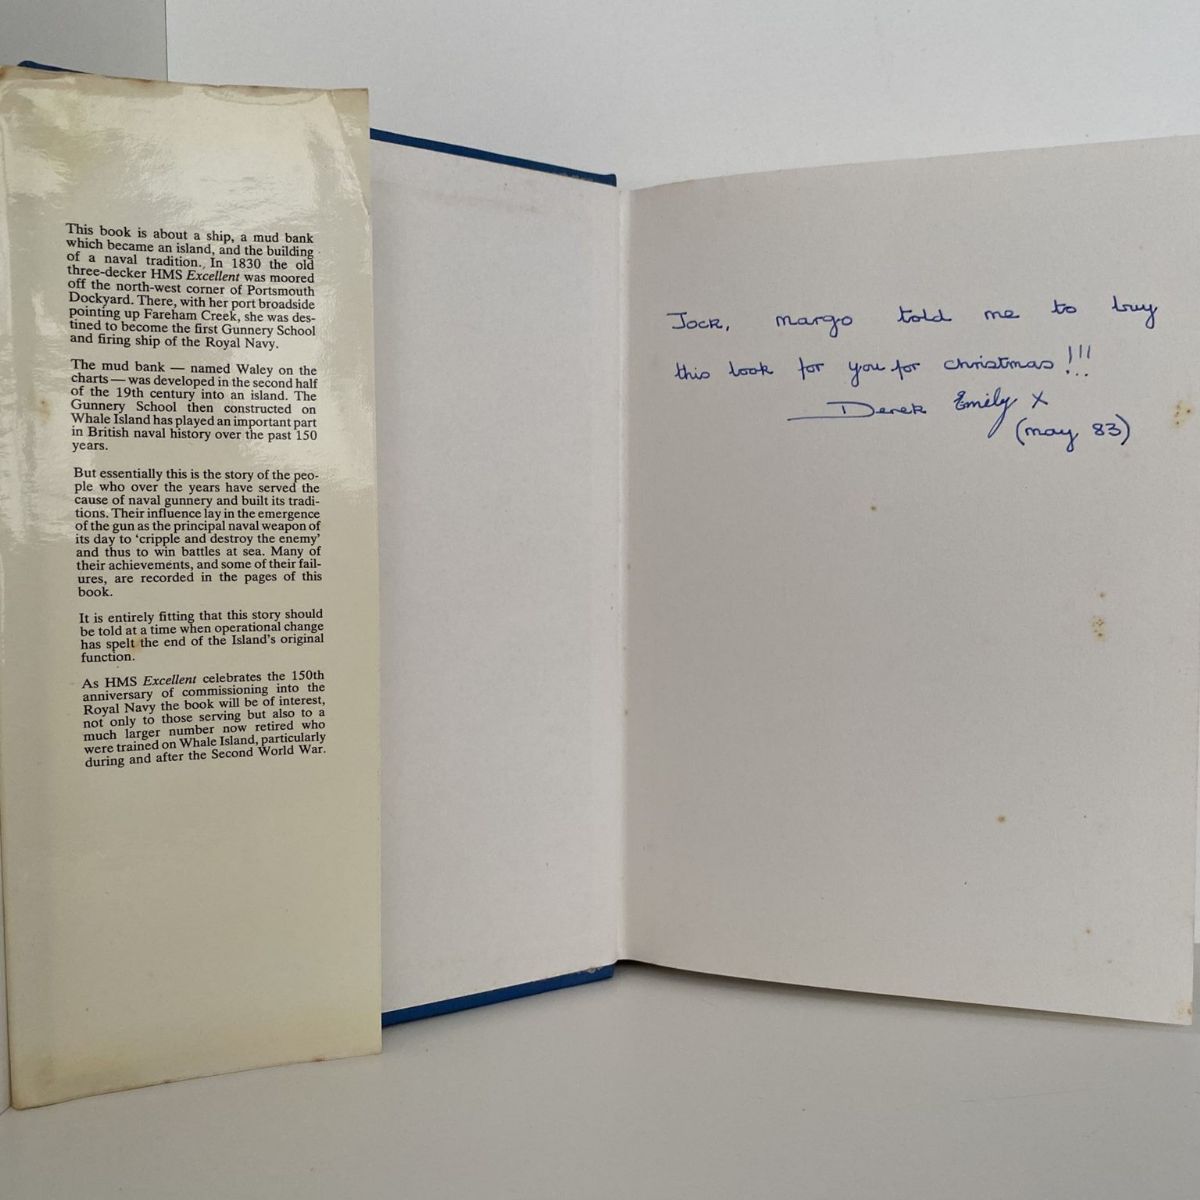 This book is about a ship, a mud bank
which became an island, and the building
of a naval tradition. In 1830 the old
three-decker HMS Excellent was moored
off the north-west corner of Portsmouth
Dockyard. There, with her port broadside
pointing up Fareham Creek, she was des-
tined to become the first Gunnery School
and firing ship of the Royal Navy.
The mud bank — named Waley on the
charts — was developed in the second half
of the 19th century into an island. The
Gunnery School then constructed on
Whale Island has played an important part
in British naval history over the past 150
years.
But essentially this is the story of the peo-
ple who over the years have served the
cause of naval gunnery and built its tradi-
tions. Their influence lay in the emergence
of the gun as the principal naval weapon of
its day to ‘cripple and destroy the enemy’
and thus to win battles at sea. Many of
their achievements, and some of their fail-
ures, are recorded in the pages of this
book.
It is entirely fitting that this story should
be told at a time when operational change
has spelt the end of the Island's original
function.
As HMS Excellent celebrates the 150th
anniversary of commissioning into the
Royal Navy the book will be of interest,
not only to those serving but also to a
much larger number now retired who
were trained on Whale Island, particularly
during and after the Second World War.
Jock, margo told me to buy
this book for you for christmas!!!
Derek Emily X
(may 83)